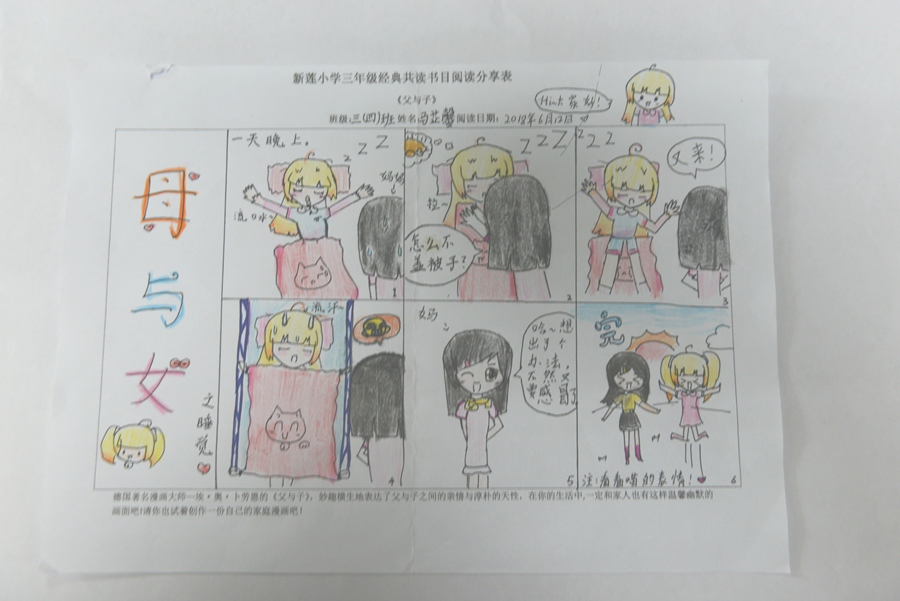 新莲小学三年级经典共读书目阅读分享表
《父与子》
班级:三(四)班 姓名 阅读日期:2018年6月12日
母
与
女
之
睡
觉
一天晚上。
z Z Z
妈妈
流口水~
1
Z Z Z Z
拉~
怎么不
盖被子?
2
Z Z
又来!
3
流汗~
4
妈
哈~想
出了个
办法,
不然又
要感冒了
5
完
注:看看喵的表情!
6
德国著名漫画大师—埃·奥·卜劳恩的《父与子》,妙趣横生地表达了父与子之间的亲情与淳朴的天性,在你的生活中,一定和家人也有这样温馨幽默的
画面吧!请你也试着创作一份自己的家庭漫画吧!